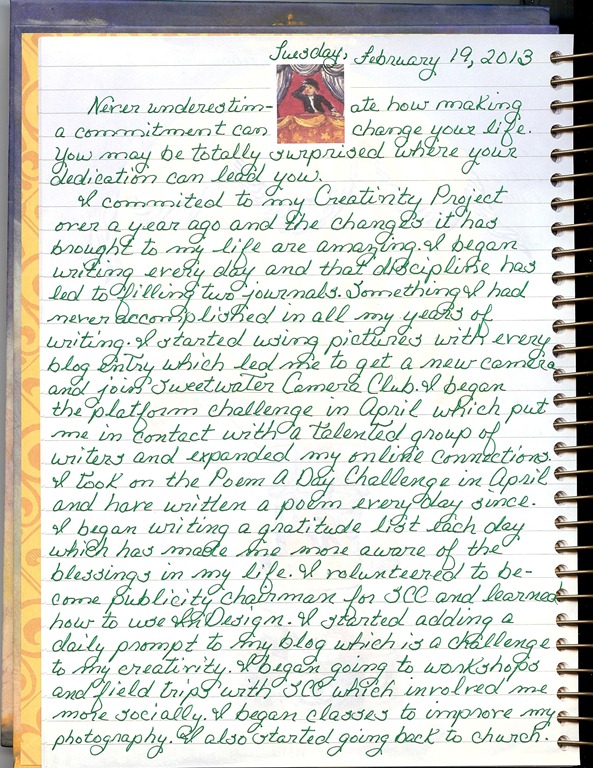 Tuesday, February 19, 2013
Never underestim- ate how making
a commitment can change your life.
You may be totally surprised where your
dedication can lead you.
I commited to my Creativity Project
over a year ago and the changes it has
brought to my life are amazing. I began
writing every day and that discipline has
led to filling two journals. Something I had
never accomplished in all my years of
writing. I started using pictures with every
blog entry which led me to get a new camera
and join Sweetwater Camera Club. I began
the platform challenge in April which put
me in contact with a talented group of
writers and expanded my online connections.
I took on the Poem A Day Challenge in April
and have written a poem every day since.
I began writing a gratitude list each day
which has made me more aware of the
blessings in my life. I volunteered to be-
come publicity chairman for SCC and learned
how to use InDesign. I started adding a
daily prompt to my blog which is a challenge
to my creativity. I began going to workshops
and field trips with SCC which involved me
more socially. I began classes to improve my
photography. I also started going back to church.